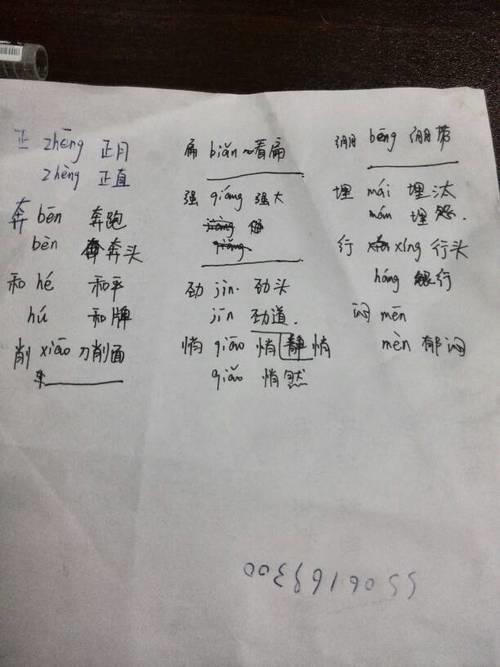 正 zhēng 正月
zhèng 正直
奔 bēn 奔跑
bèn 奔头
和 hé 和平
hú 和牌
削 xiāo 刀削面
扁 biǎn ~看扁
强 qiáng 强大
劲 jìn. 劲头
jìn 劲道.
悄 qiāo 悄静悄
qiǎo 悄然
绷 bēng 绷带
埋 mái 埋汰
mán 埋怨.
行 xíng 行头
háng 银行
闷 mēn
mèn 郁闷